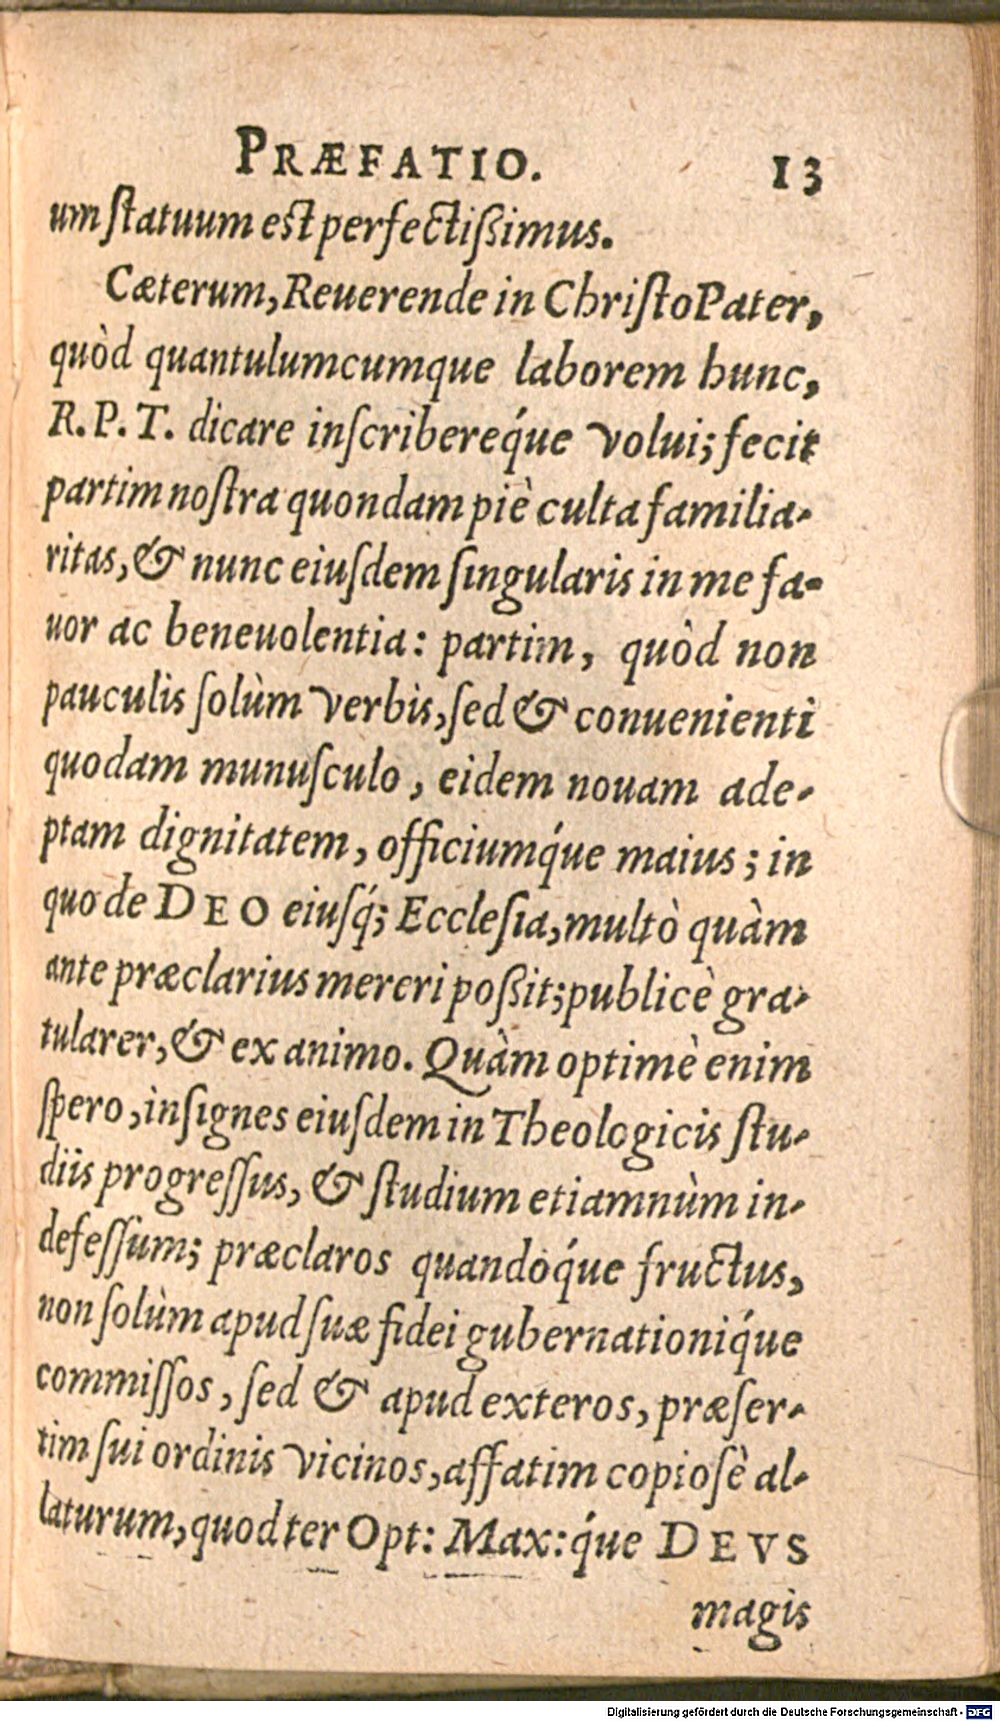 PRÆFATIO. 13
um ſtatuum eſt perfectiſsimus.
Cæterum, Reuerende in Chriſto Pater,
quòd quantulumcumque laborem hunc,
R. P. T. dicare inſcribereq́ue volui; fecit
partim noſtra quondam piè culta familia-
ritas, & nunc eiuſdem ſingularis in me fa-
uor ac beneuolentia: partim, quòd non
pauculis ſolùm verbis, ſed & conuenienti
quodam munuſculo, eidem nouam ade-
ptam dignitatem, officiumq́ue maius; in
quo de DEO eiuſq́; Eccleſia, multò quàm
ante præclarius mereri poſsit; publicè gra-
tularer, & ex animo. Quàm optimè enim
ſpero, inſignes eiuſdem in Theologicis ſtu-
diis progreſſus, & ſtudium etiamnùm in-
defeſſum; præclaros quandoq́ue fructus,
non ſolùm apud ſuæ fidei gubernationiq́ue
commiſſos, ſed & apud exteros, præſer-
tim ſui ordinis vicinos, affatim copioſè al-
laturum, quod ter Opt: Max: q́ue DEVS
magis
Digitalisierung gefördert durch die Deutsche Forschungsgemeinschaft - DFG